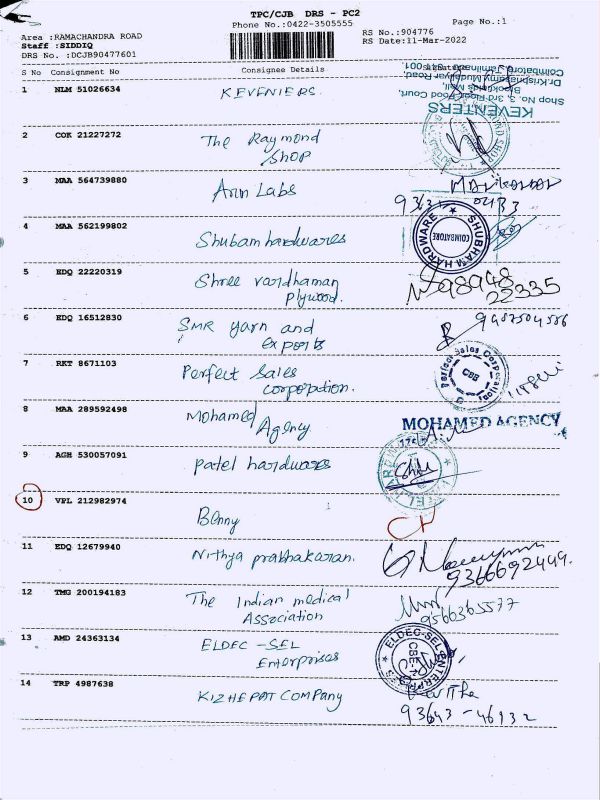 TPC/CJB DRS - PC2
Phone No.:0422-3505555
Page No.:1
Area :RAMACHANDRA ROAD
Staff :SIDDIQ
DRS No. :DCJB90477601
RS No.:904776
RS Date:11-Mar-2022
S No Consignment No Consignee Details
1 NLM 51026634 KEVENIERS
KEVENTERS
Shop No. 3, 3rd Floor, Food Court,
Brookfields Mall,
Dr.Krishnasamy Mudaliyar Road,
Coimbatore, Tamilnadu
2 COK 21227272 The Raymond
Shop
3 MAA 564739880 Arin Labs
Manikandan
4 MAA 562199802 Shubam hardwares
SHUBHAM HARDWARE
COIMBATORE
5 EDQ 22220319 Shree vardhaman
plywood.
98948
22335
6 EDQ 16512830 SMR yarn and
exports
9487504586
7 RKT 8671103 Perfect Sales
corporation.
Perfect Sales Corporation
CBE
8 MAA 289592498 Mohamed
Agency
MOHAMED AGENCY
9 AGH 530057091 patel hardwares
10 VPL 212982974 Benny
11 EDQ 12679940 Nithya prabhakaran.
9366692449.
12 TMG 200194183 The Indian medical
Association
9566365577
13 AMD 24363134 ELDEC -SEL
Enterprises
ELDEC-SEL ENTERPRISES
14 TRP 4987638 KIZHEPAT COMPANY
93643-46132